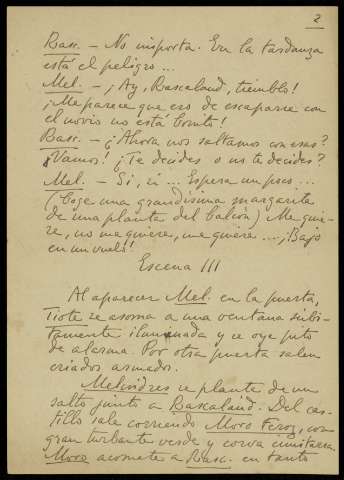 2
Basc. - No importa. En la tardanza
está el peligro...
Mel. - ¡Ay, Bascalaud, tiemblo!
¡Me parece que eso de escaparse con
el novio no está bonito!
Basc. - ¿Ahora nos saltamos con esas?
¡Vamos! ¿Te decides o no te decides?
Mel. - Si, sí ... Espera un poco ...
(Coge una grandísima margarita
de una planta del balcón) Me quie-
re, no me quiere, me quiere ... ¡Bajo
en un vuelo!
Escena III
Al aparecer Mel. en la puerta,
Tiote se asoma a una ventana súbi-
tamente iluminada y se oye pito
de alarma. Por otra puerta salen
criados armados.
Melindres se planta de un
salto junto a Bascalaud. Del cas-
tillo sale corriendo Moro Feroz, con
gran turbante verde y corva cimitarra.
Moro acomete a Basc. en tanto